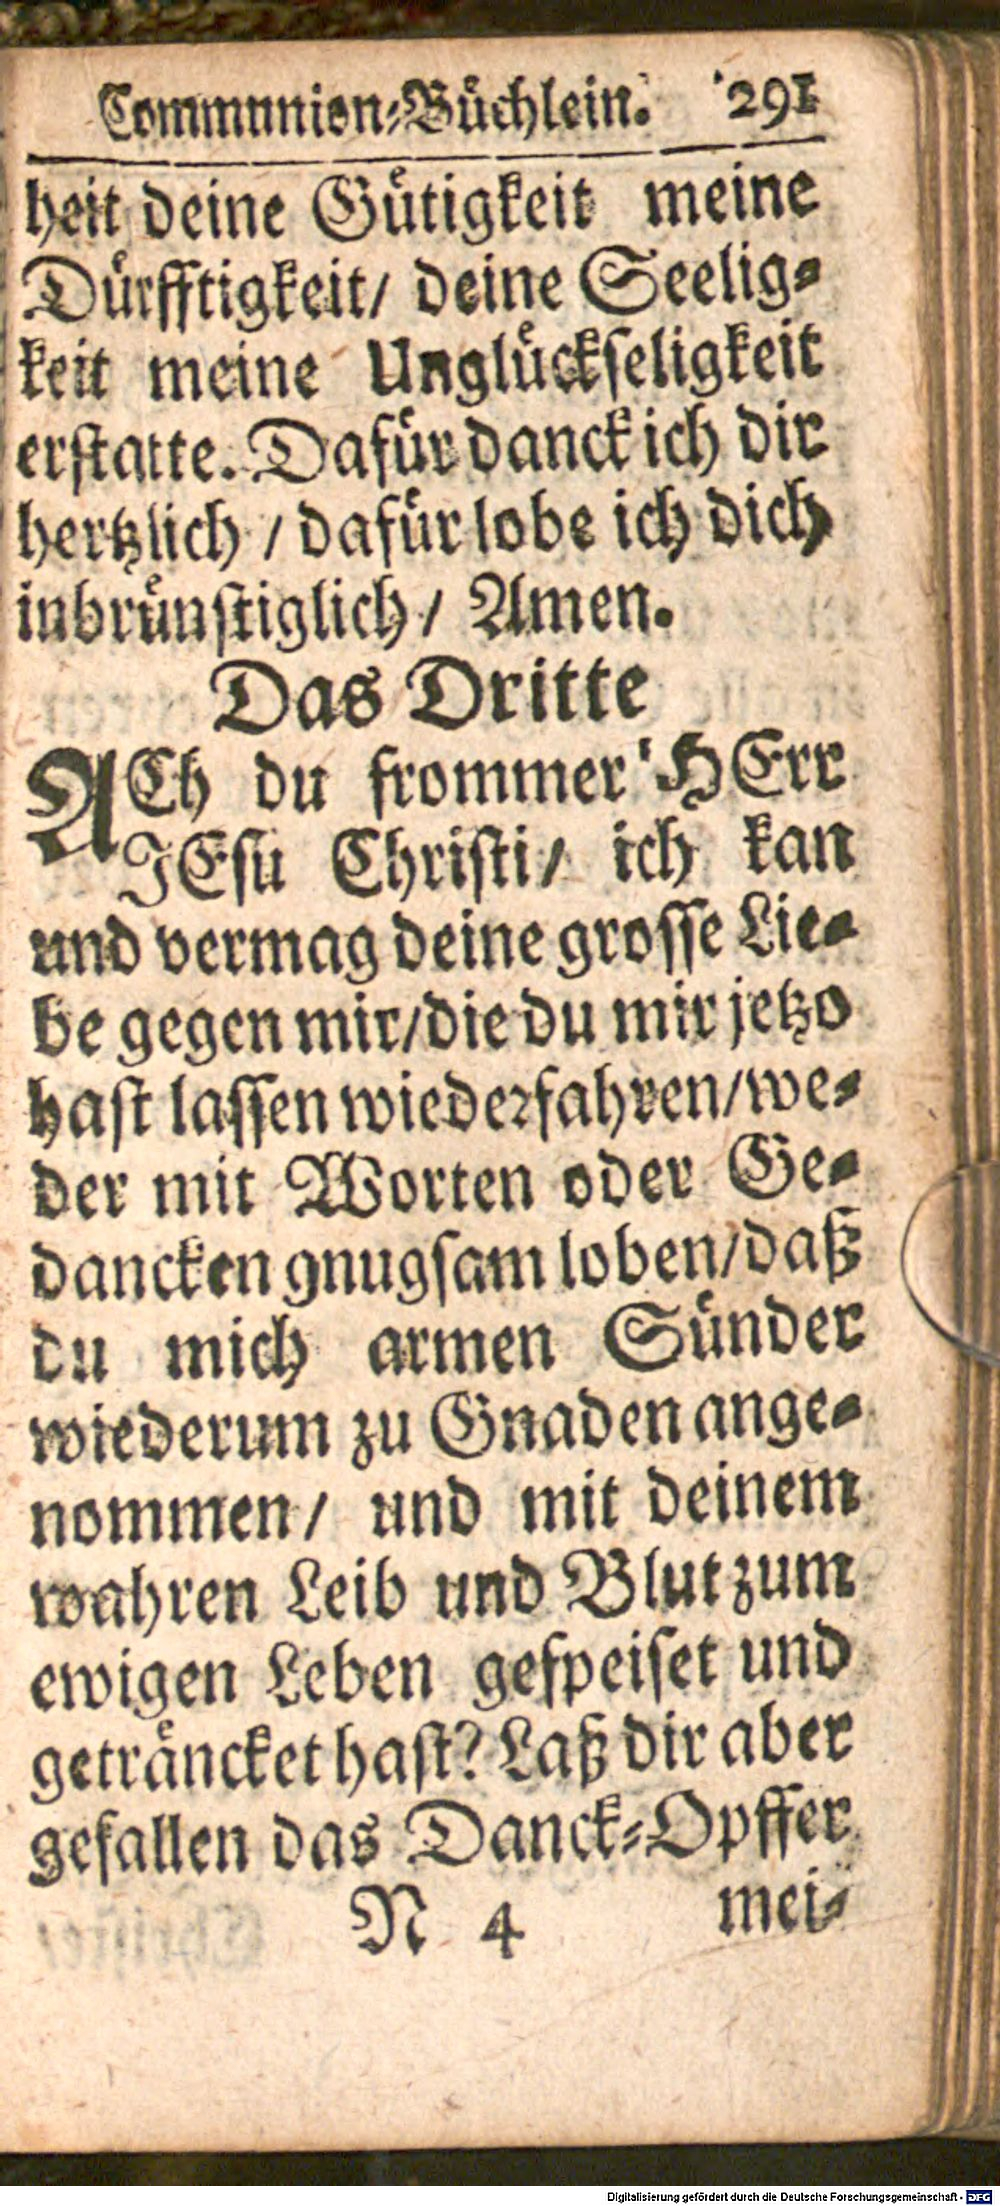 Communion-Büchlein. 291
heit deine Gütigkeit meine
Dürfftigkeit/ deine Seelig-
keit meine Unglückseligkeit
erstatte. Dafür danck ich dir
hertzlich / dafür lobe ich dich
inbrünstiglich / Amen.
Das Dritte
ACh du frommer HErr
JEsu Christi / ich kan
und vermag deine grosse Lie-
be gegen mir/die du mir jetzo
hast lassen wiederfahren/we-
der mit Worten oder Ge-
dancken gnugsam loben/daß
du mich armen Sünder
wiederum zu Gnaden ange-
nommen / und mit deinem
wahren Leib und Blut zum
ewigen Leben gespeiset und
geträncket hast? Laß dir aber
gefallen das Danck-Opffer
N 4 mei-
Digitalisierung gefördert durch die Deutsche Forschungsgemeinschaft - DFG